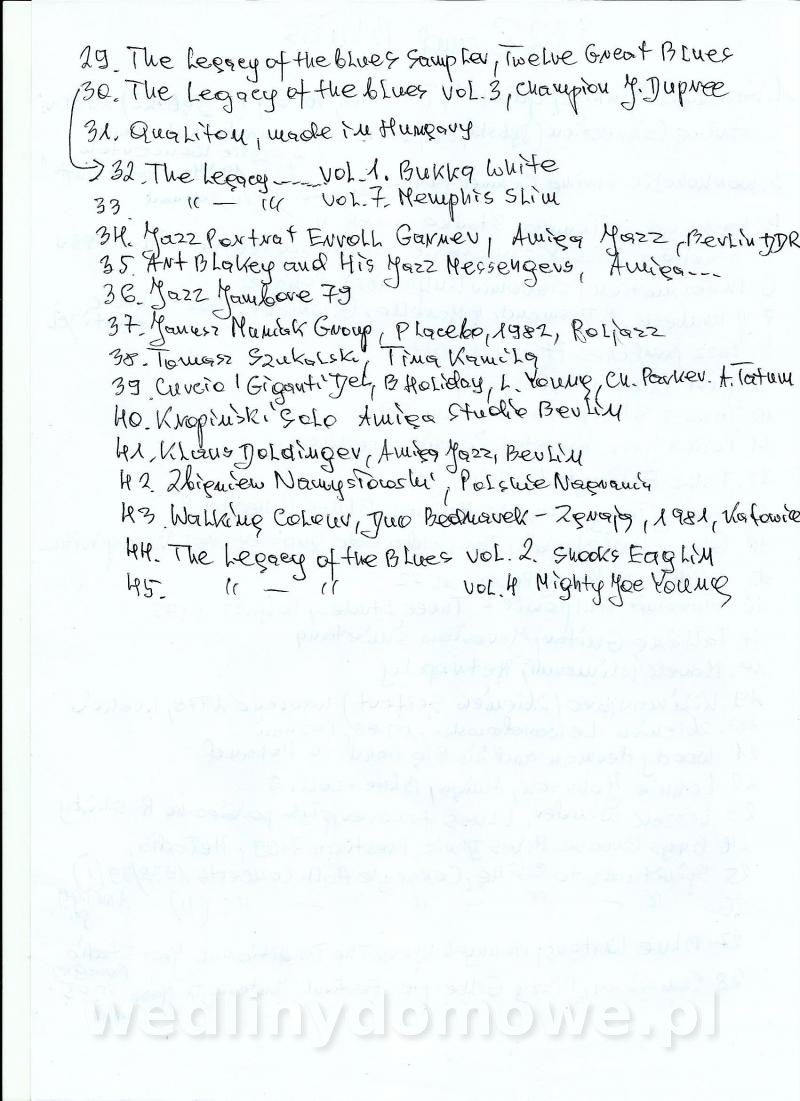 29. The Legacy of the blues Sampler, Twelve Great Blues
30. The Legacy of the blues vol. 3, champion J. Dupree
31. Qualiton, made in Hungary
32. The Legacy ---- vol. 1. Bukka White
33. " — " vol. 7. Memphis Slim
34. Jazz Portrat Erroll Garner, Amiga Jazz, Berlin DDR
35. Art Blakey and His Jazz Messengers, Amiga---
36. Jazz Jambore 79
37. Janusz Muniak Group, Placebo, 1982, Poljazz
38. Tomasz Szukalski, Tina Kamila
39. Curcio I Giganti Del, B Holiday, L. Young, Ch. Parker. A. Tatum
40. Kropiński Solo Amiga Studio Berlin
41. Klaus Doldinger, Amiga Jazz, Berlin
42. Zbigniew Namysłowski, Polskie Nagrania
43. Walking Colour, Duo Bednarek - Zgraja, 1981, Katowice
44. The Legacy of the Blues vol. 2. Snooks Eaglin
45. " — " vol. 4 Mighty Joe Young
wedlinydomowe.pl